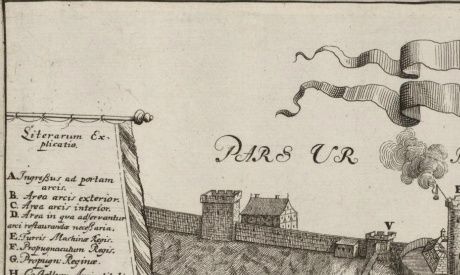 Literarum Ex-
plicatio.
A. Ingreßus ad portam
arcis.
B. Area arcis exterior.
C. Area arcis interior.
D. Area in qua adservantur
arci restaurandæ necessaria.
E. Turris Machinæ Regis.
F. Propugnaculum Regis.
G. Propugn: Reginæ.
H.
PARS UR
V